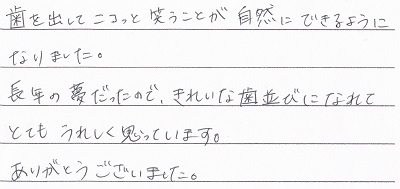 歯を出してニコっと笑うことが自然にできるように
なりました。
長年の夢だったので、きれいな歯並びになれて
とてもうれしく思っています。
ありがとうございました。